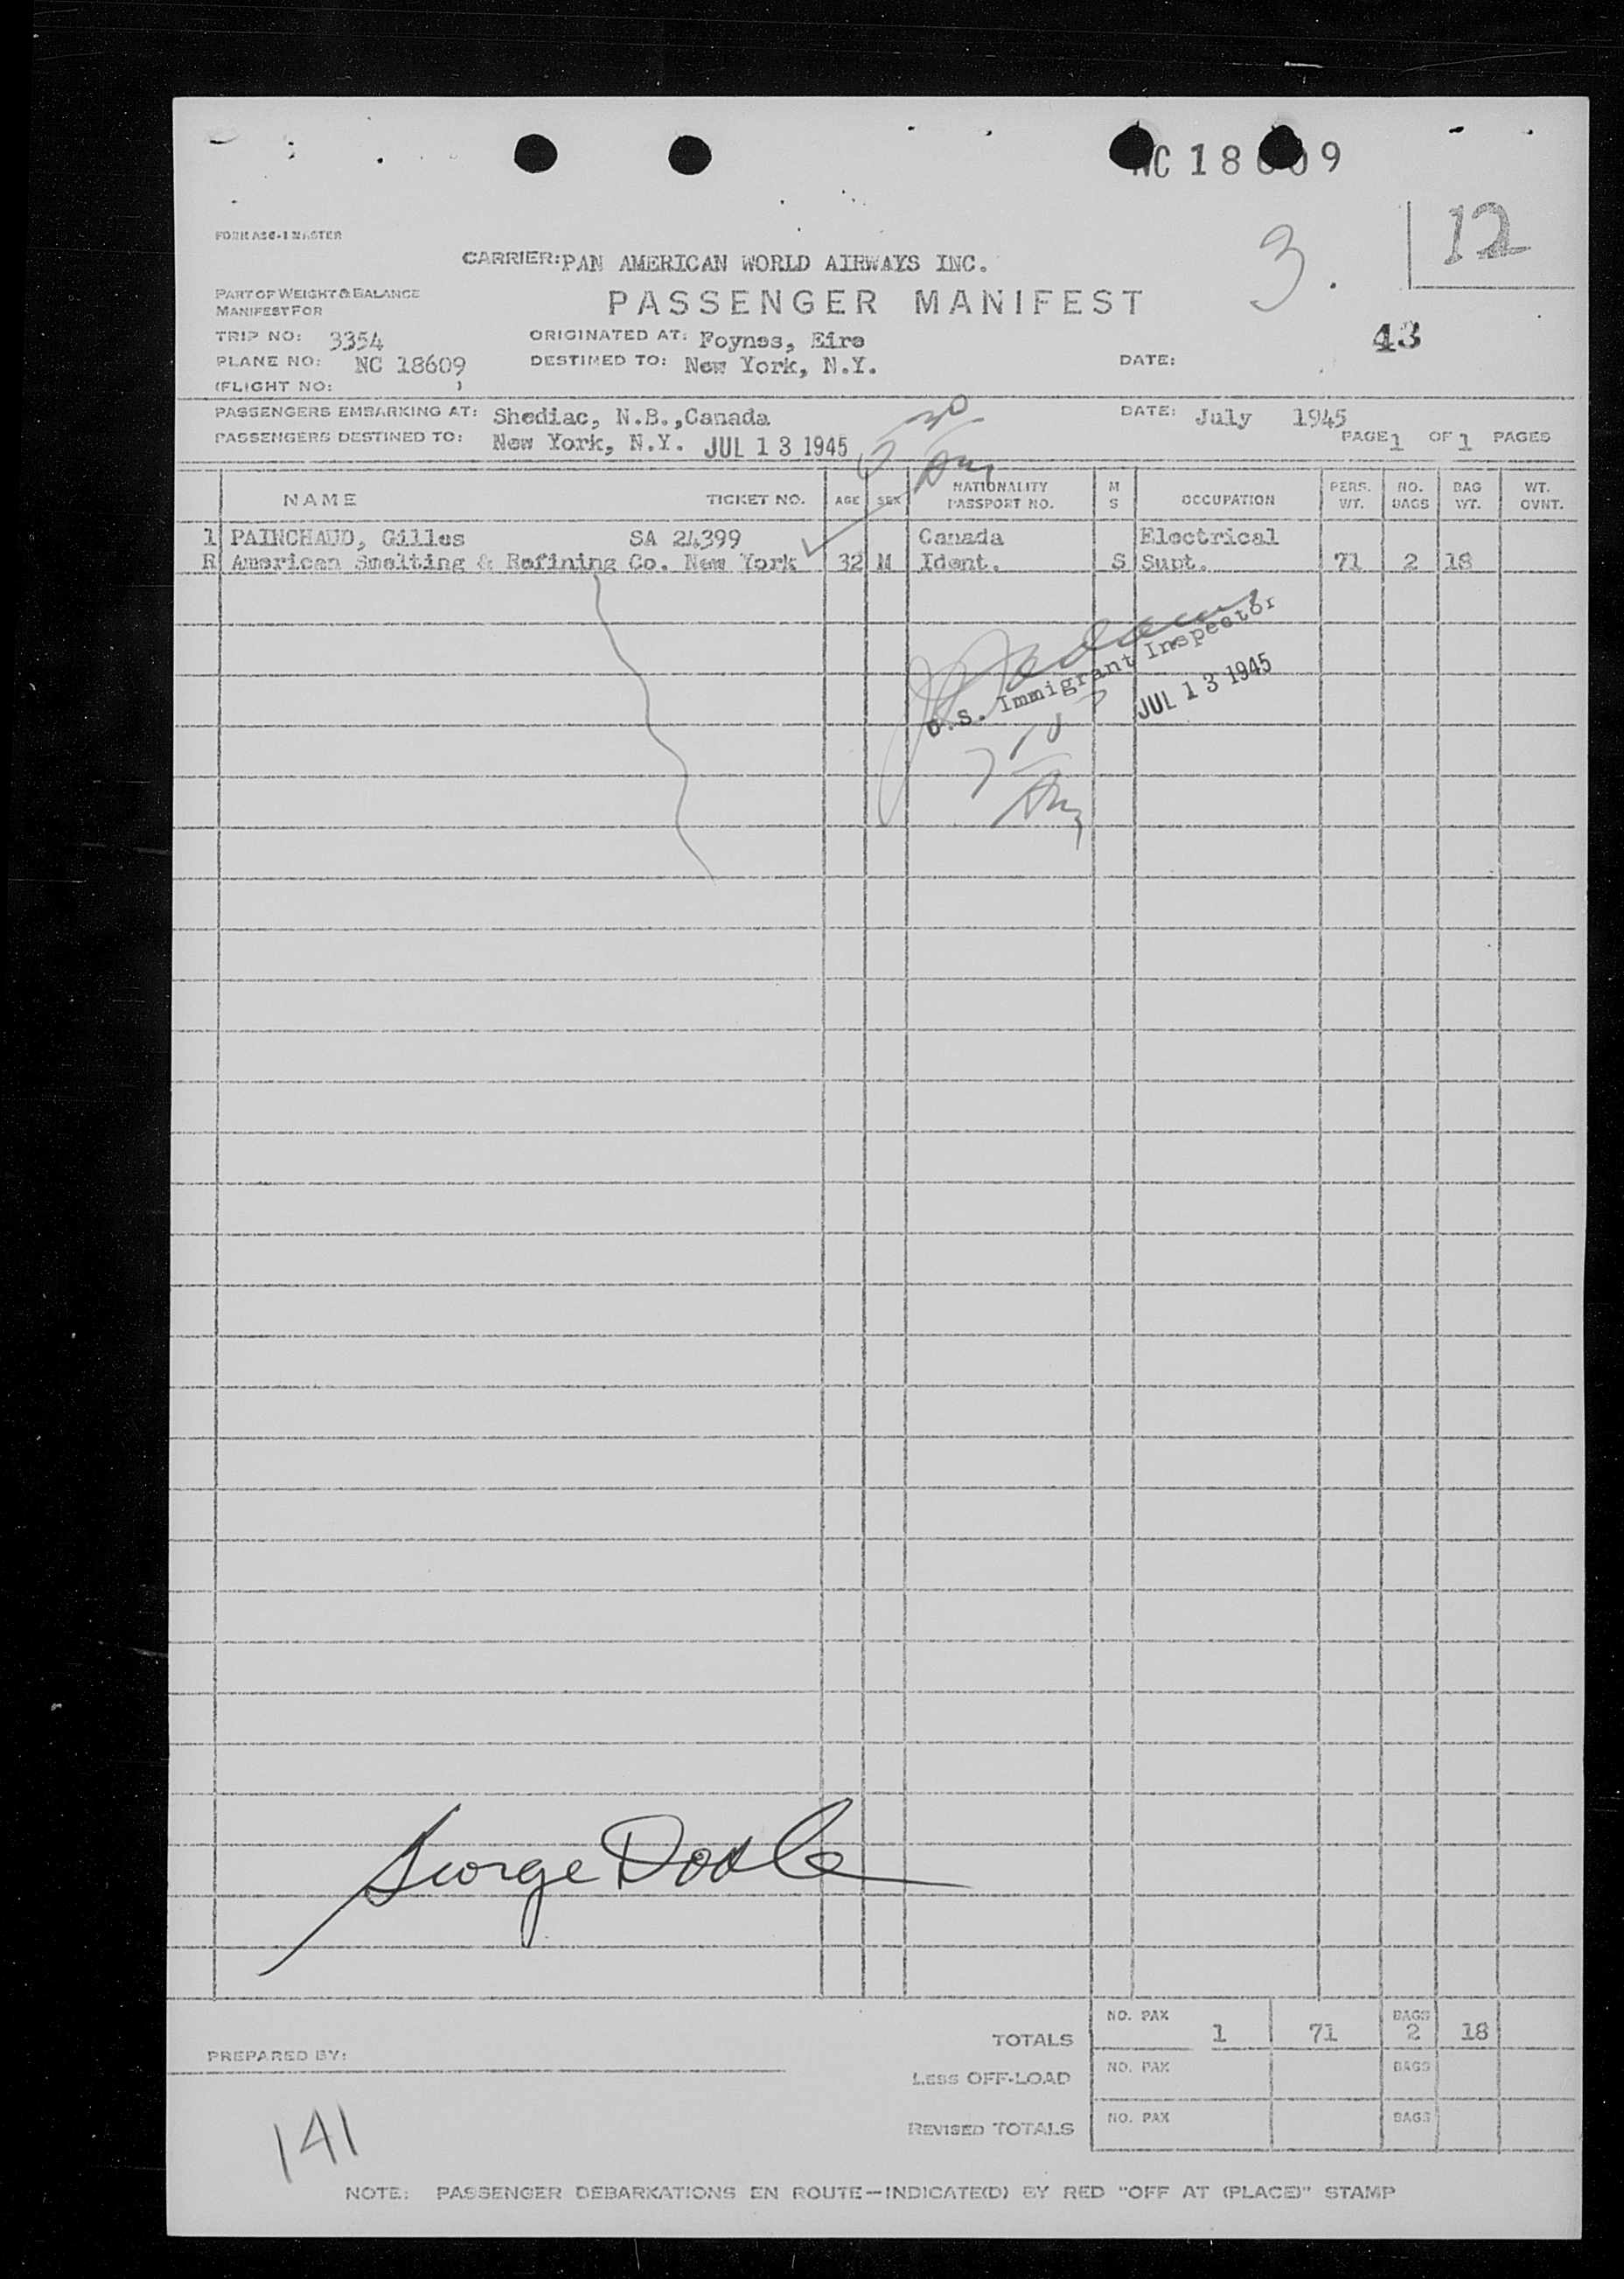 NC 18609
12
FORM ASC-1 MASTER
3.
CARRIER: PAN AMERICAN WORLD AIRWAYS INC.
PART OF WEIGHT & BALANCE
MANIFEST FOR
PASSENGER MANIFEST
43
TRIP NO: 3354 ORIGINATED AT: Foynes, Eire
PLANE NO: NC 18609 DESTINED TO: New York, N.Y. DATE:
(FLIGHT NO: )
PASSENGERS EMBARKING AT: Shediac, N.B.,Canada DATE: July 1945
PASSENGERS DESTINED TO: New York, N.Y. JUL 13 1945 PAGE 1 OF 1 PAGES
NAME TICKET NO. AGE SEX NATIONALITY PASSPORT NO. M S OCCUPATION PERS. WT. NO. BAGS BAG WT. WT. OVNT.
1 PAINCHAUD, Gilles SA 24399 Canada Electrical
R American Smelting & Refining Co. New York 32 M Ident. S Supt. 71 2 18
U.S. Immigrant Inspector
JUL 13 1945
George Doole
TOTALS NO. PAX 1 71 BAGS 2 18
PREPARED BY:
LESS OFF-LOAD NO. PAX BAGS
REVISED TOTALS NO. PAX BAGS
141
NOTE: PASSENGER DEBARKATIONS EN ROUTE—INDICATE(D) BY RED "OFF AT (PLACE)" STAMP